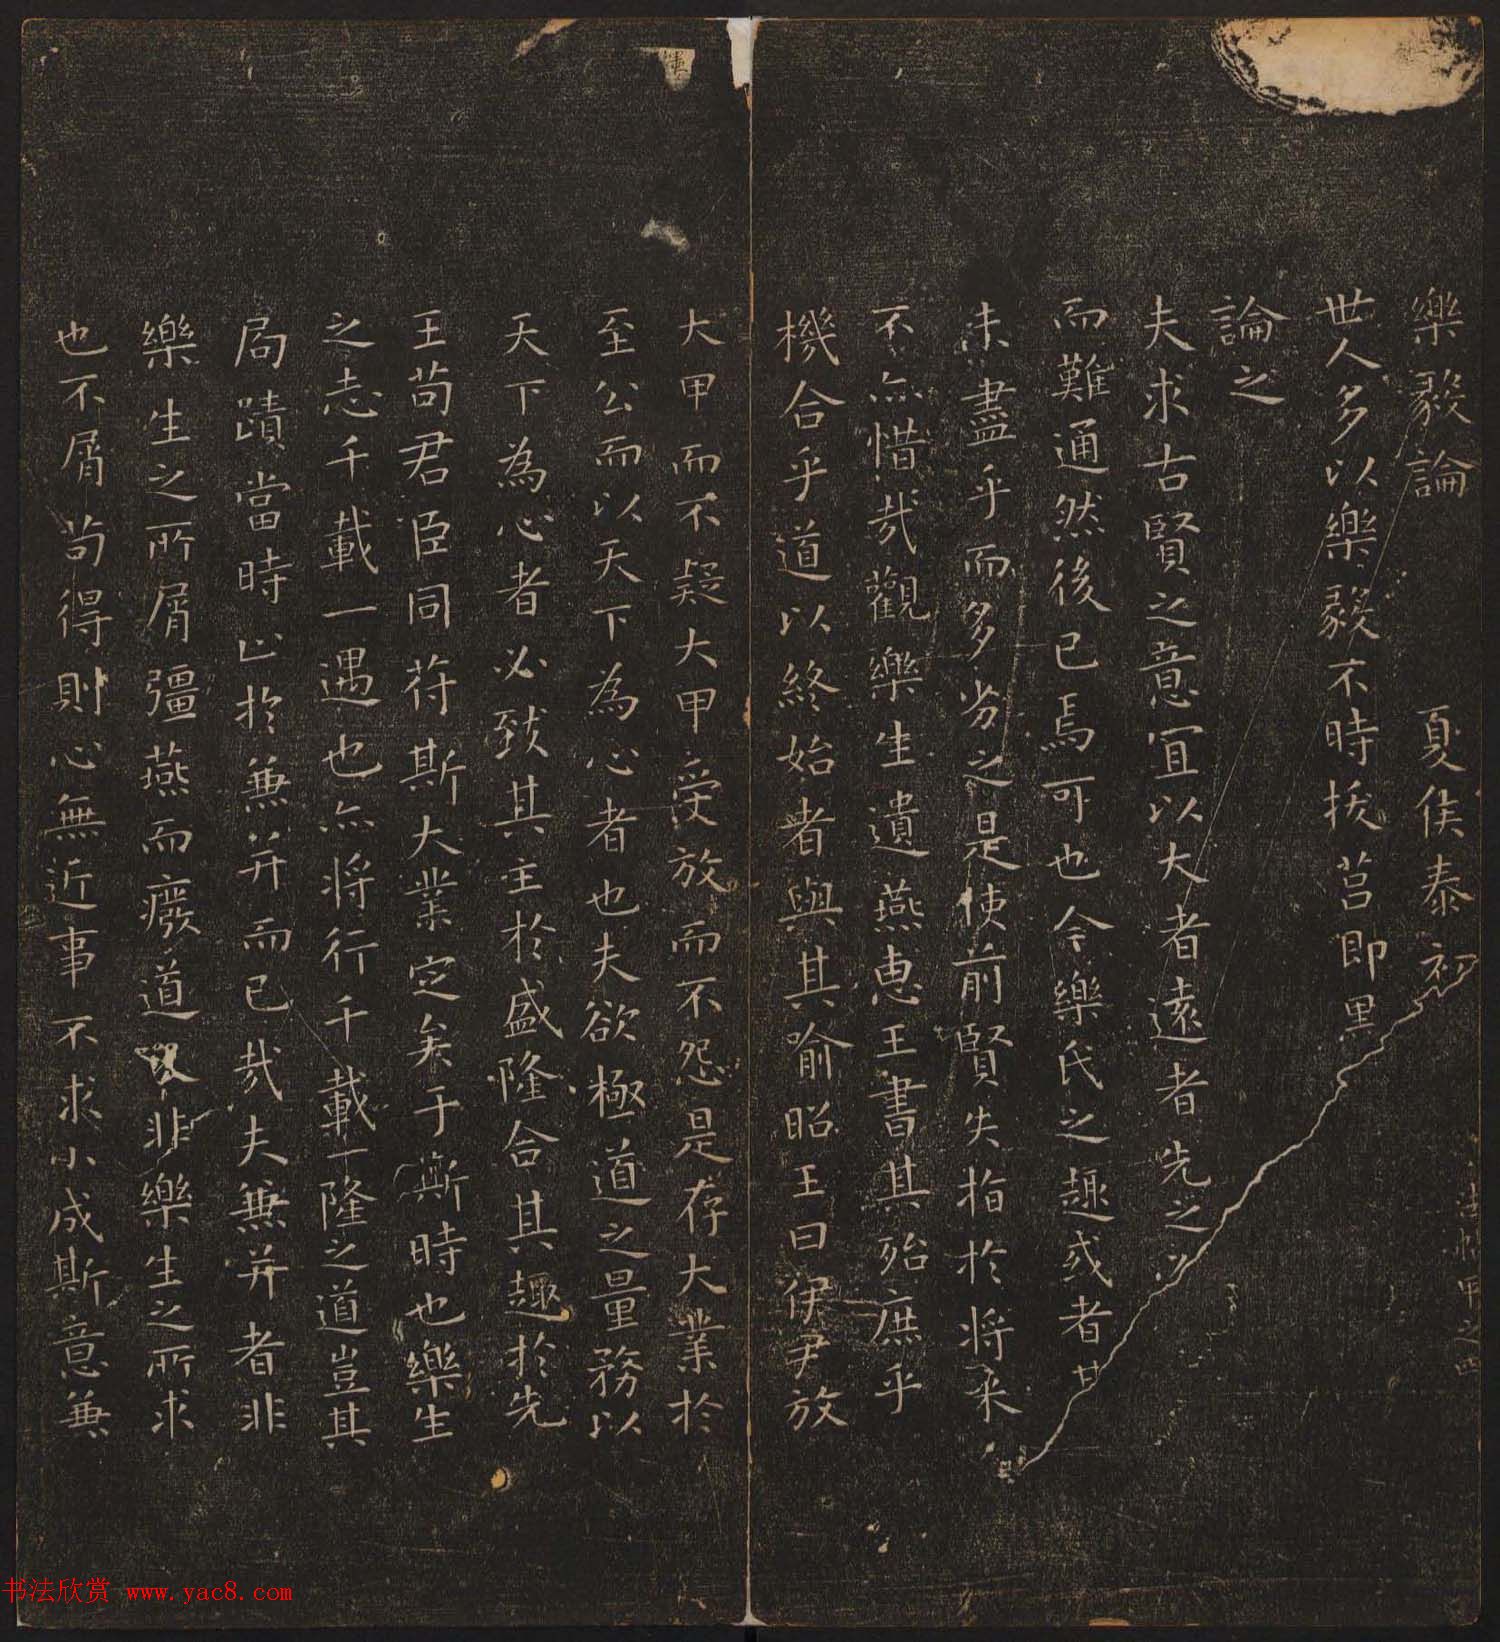 樂毅論 夏侯泰初
法帖甲之四
世人多以樂毅不時拔莒即墨
論之
夫求古賢之意宜以大者遠者先之必
而難通然後已焉可也今樂氏之趣或者其
未盡乎而多劣之是使前賢失指於將來
不亦惜哉觀樂生遺燕惠王書其殆庶乎
機合乎道以終始者與其喻昭王曰伊尹放
大甲而不疑大甲受放而不怨是存大業於
至公而以天下為心者也夫欲極道之量務以
天下為心者必致其主於盛隆合其趣於先
王苟君臣同符斯大業定矣于斯時也樂生
之志千載一遇也亦將行千載一隆之道豈其
局蹟當時止於兼并而已哉夫兼并者非
樂生之所屑彊燕而廢道又非樂生之所求
也不屑苟得則心無近事不求小成斯意兼
书法欣赏 www.yac8.com